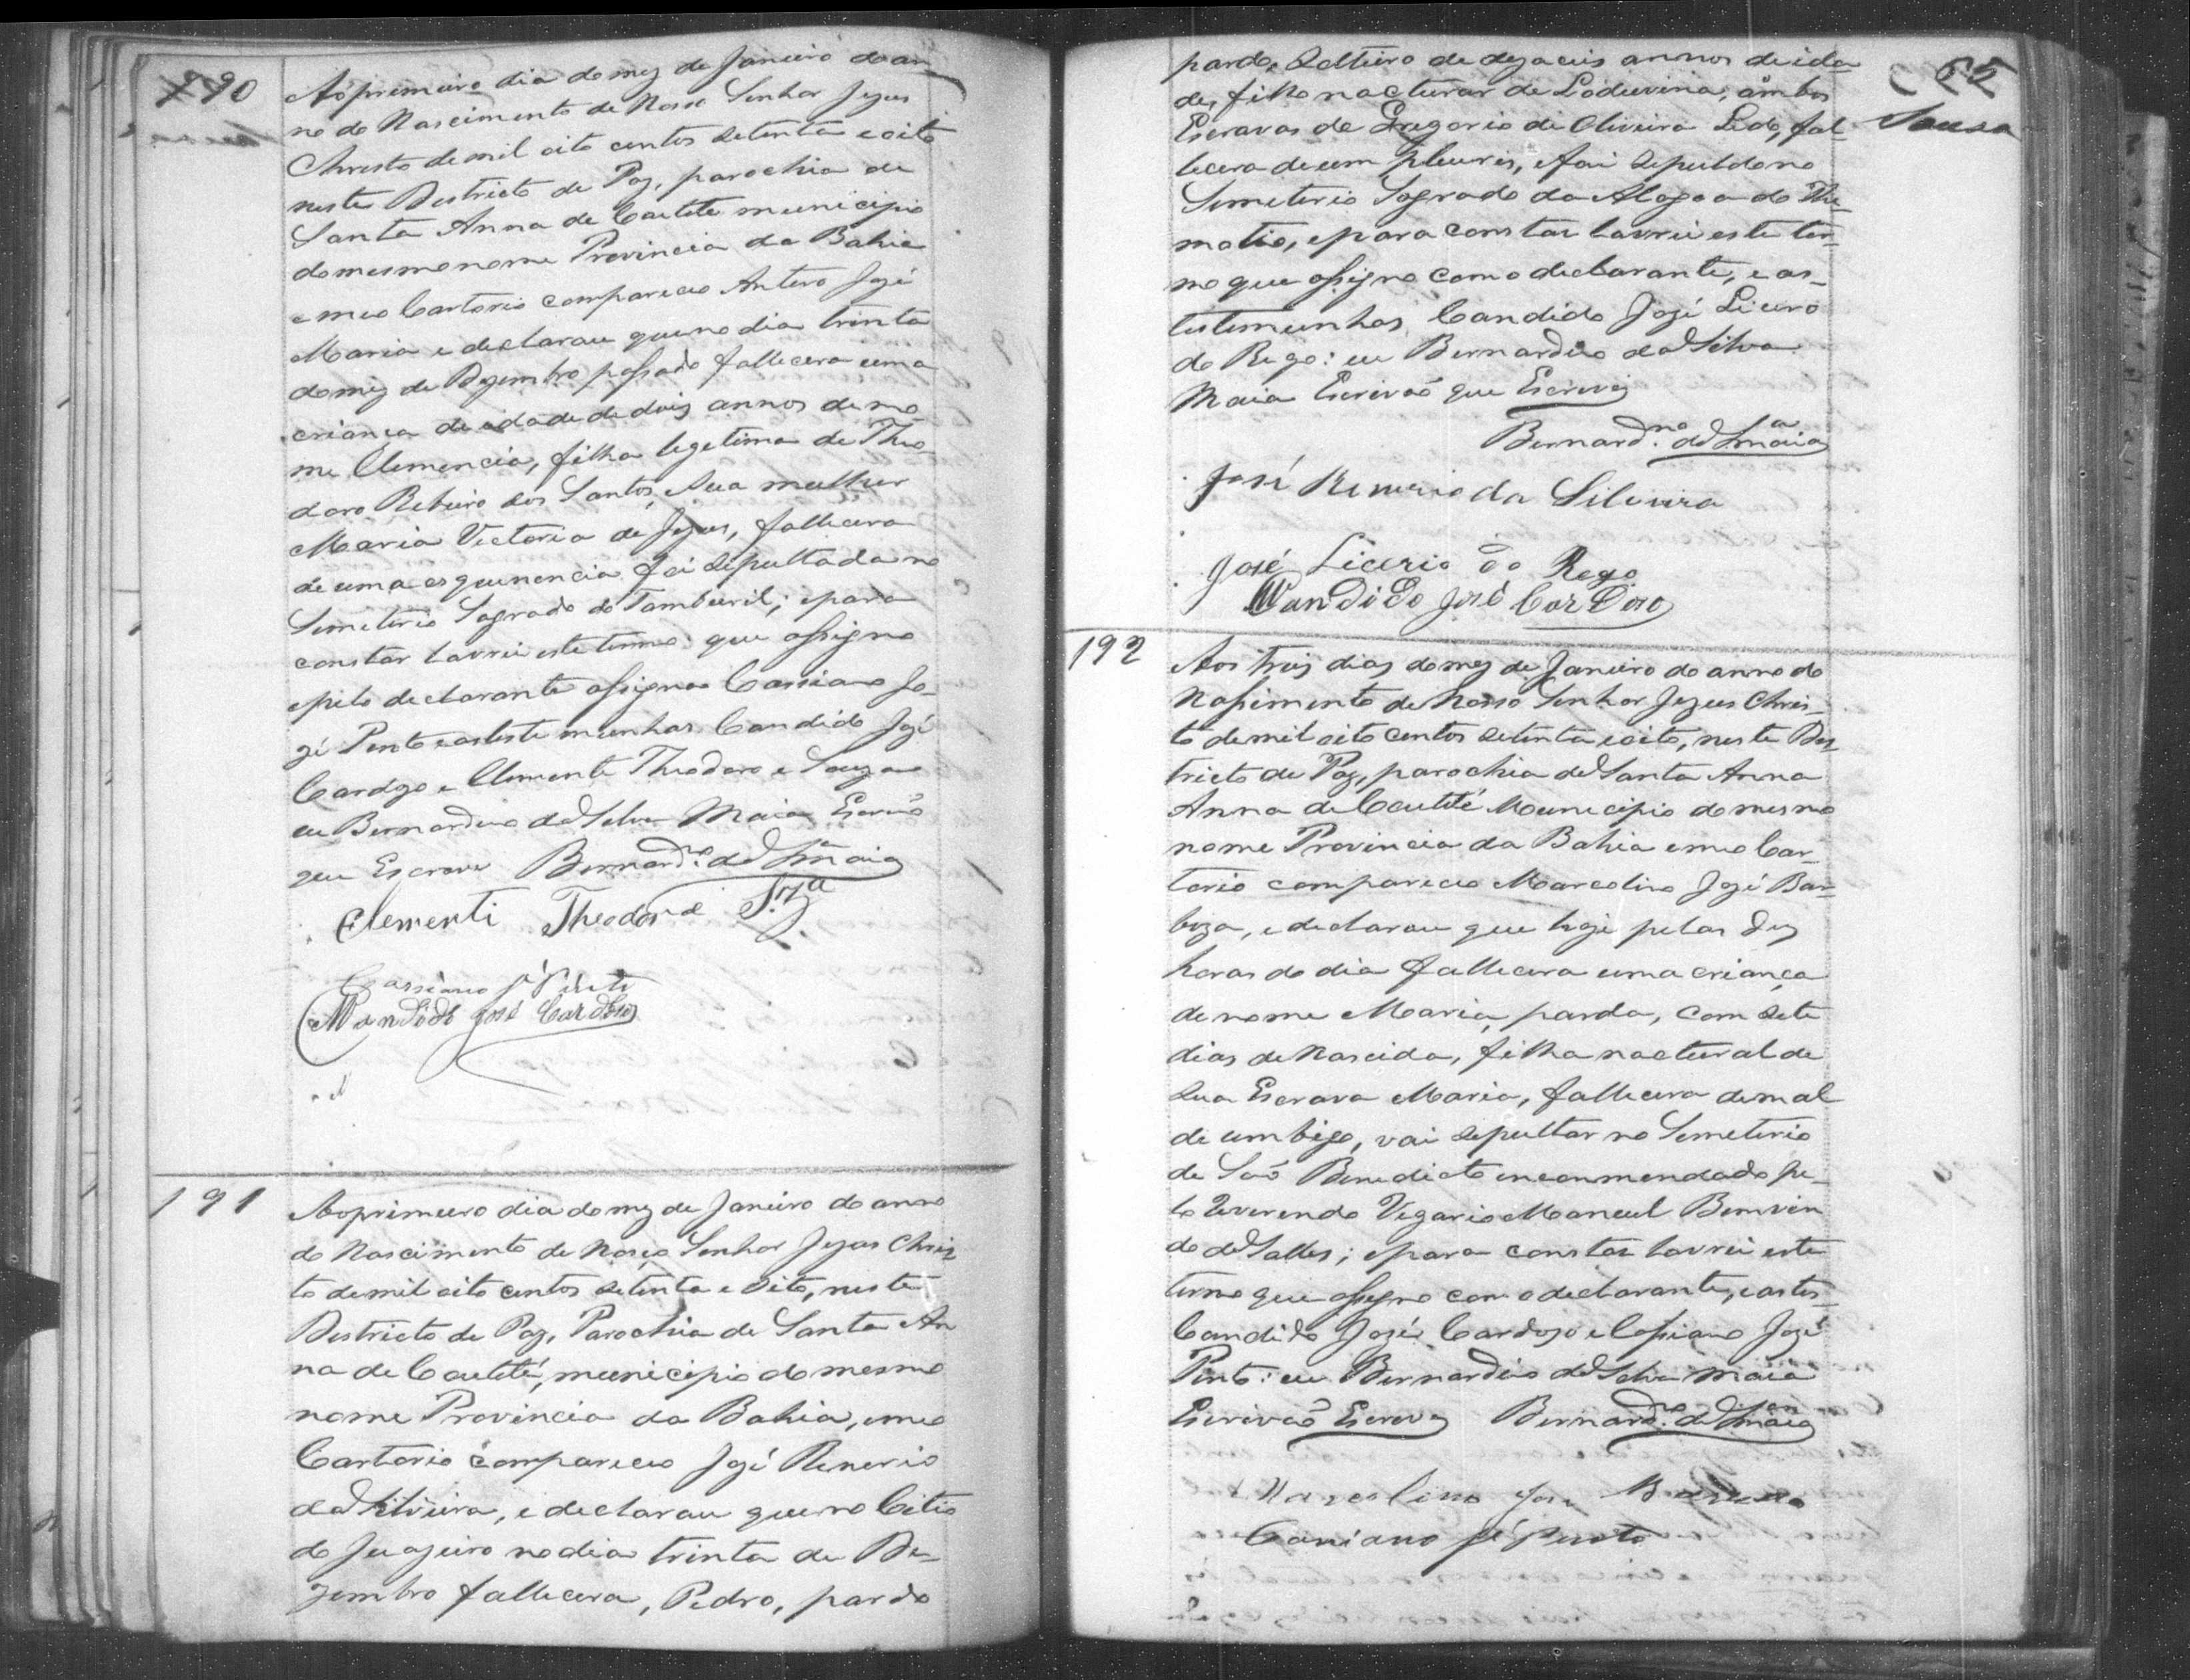 190
Ao primeiro dia do mez de Janeiro do an
no do Nascimento de Nosso Senhor Jezus
Christo de mil oito centos setenta e oito
neste Destricto de Paz, parochia de
Santa Anna de Caetité municipio
do mesmo nome Provincia da Bahia
e meo Cartorio compareceo Antero Jozé
Maria e declarou que no dia trinta
do mez de Dezembro passado fallecera uma
criança de idade de dois annos de no
me Clemencia, filha legetima de Theo
doro Ribeiro dos Santos, e sua mulher
Maria Victoria de Jezus, fallecera
de uma esquinencia foi sepultada no
Semeterio Sagrado do Tamburil; e para
constar lavrei este termo que assigno
e pelo declarante assigna Cassiano Jo-
zé Pinto e as teste munhas Candido Jozé
Cardozo e Clemente Theodoro e Souza
eu Bernardino da Silva Maia Escrivão
que Escrevi Bernardno. da Sa Maia
Clementi Theodor de Sza
Cassiano Jé Pinto
Candido José Cardoso
191
Ao primeiro dia do mez de Janeiro do anno
do Nascimento de Nosso Senhor Jezus Chris
to de mil oito centos setenta e oito, neste
Destricto de Paz, Parochia de Santa An
na de Caetité, municipio do mesmo
nome Provincia da Bahia, e meo
Cartorio compareceo Jozé Renerio
da Silveira, e declarou que no Citio
do Juazeiro no dia trinta de De-
zembro fallecera, Pedro, pardo
65
Souza
pardo, Solteiro de dezaceis annos de ida
de, filho nactural de Lodivina, ambos
Escravos de Gregorio de Oliveira Ledo, fal-
lecera de um pleuris, e foi sepuldo no
Semeterio Sagrado da Alagoa do Thi-
motio, e para constar lavrei este ter-
mo que assigno com o declarante, e as-
testemunhas Candido Jozé Licero
do Rego: eu Bernardino da Silva
Maia Escrivão que Escrevi
Bernardno. da Sa Maia
José Renerio da Silveira
José Licerio do Rego
Candido José Cardoso
192
Aos trez dias do mez de Janeiro do anno do
Nassimento de Nosso Senhor Jezus Chris-
to de mil oito centos setenta e oito, neste Des-
tricto de Paz, parochia de Santa Anna
Anna de Caetité Municipio do mesmo
nome Provincia da Bahia e meo Car-
torio compareceo Marcolino Jozé Bar-
boza, e declarou que hoje pelas dez
horas do dia fallecera uma criança
de nome Maria, parda, com sete
dias de Nascida, filha nactural de
sua Escrava Maria, fallecera de mal
de umbigo, vai sepultar no Semeterio
de São Benedicto encommendado pe-
lo Reverendo Vigario Manoel Bemvin
do de Salles; e para constar lavrei este
termo que assigno com o declarante, e as tes-
Candido Jozé Cardozo e Cassiano Jozé
Pinto: eu Bernardino da Silva Maia
Escrivão Escrevi Bernardno. da Sa Maia
Marcolino José Barboza
Cassiano Jé Pinto